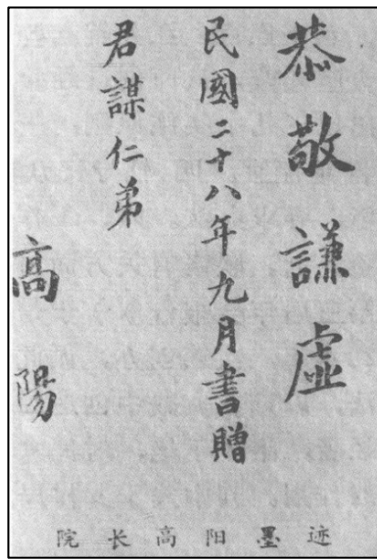 恭敬謙虛
民國二十八年九月書贈
君謀仁弟
高陽
院长高阳墨迹